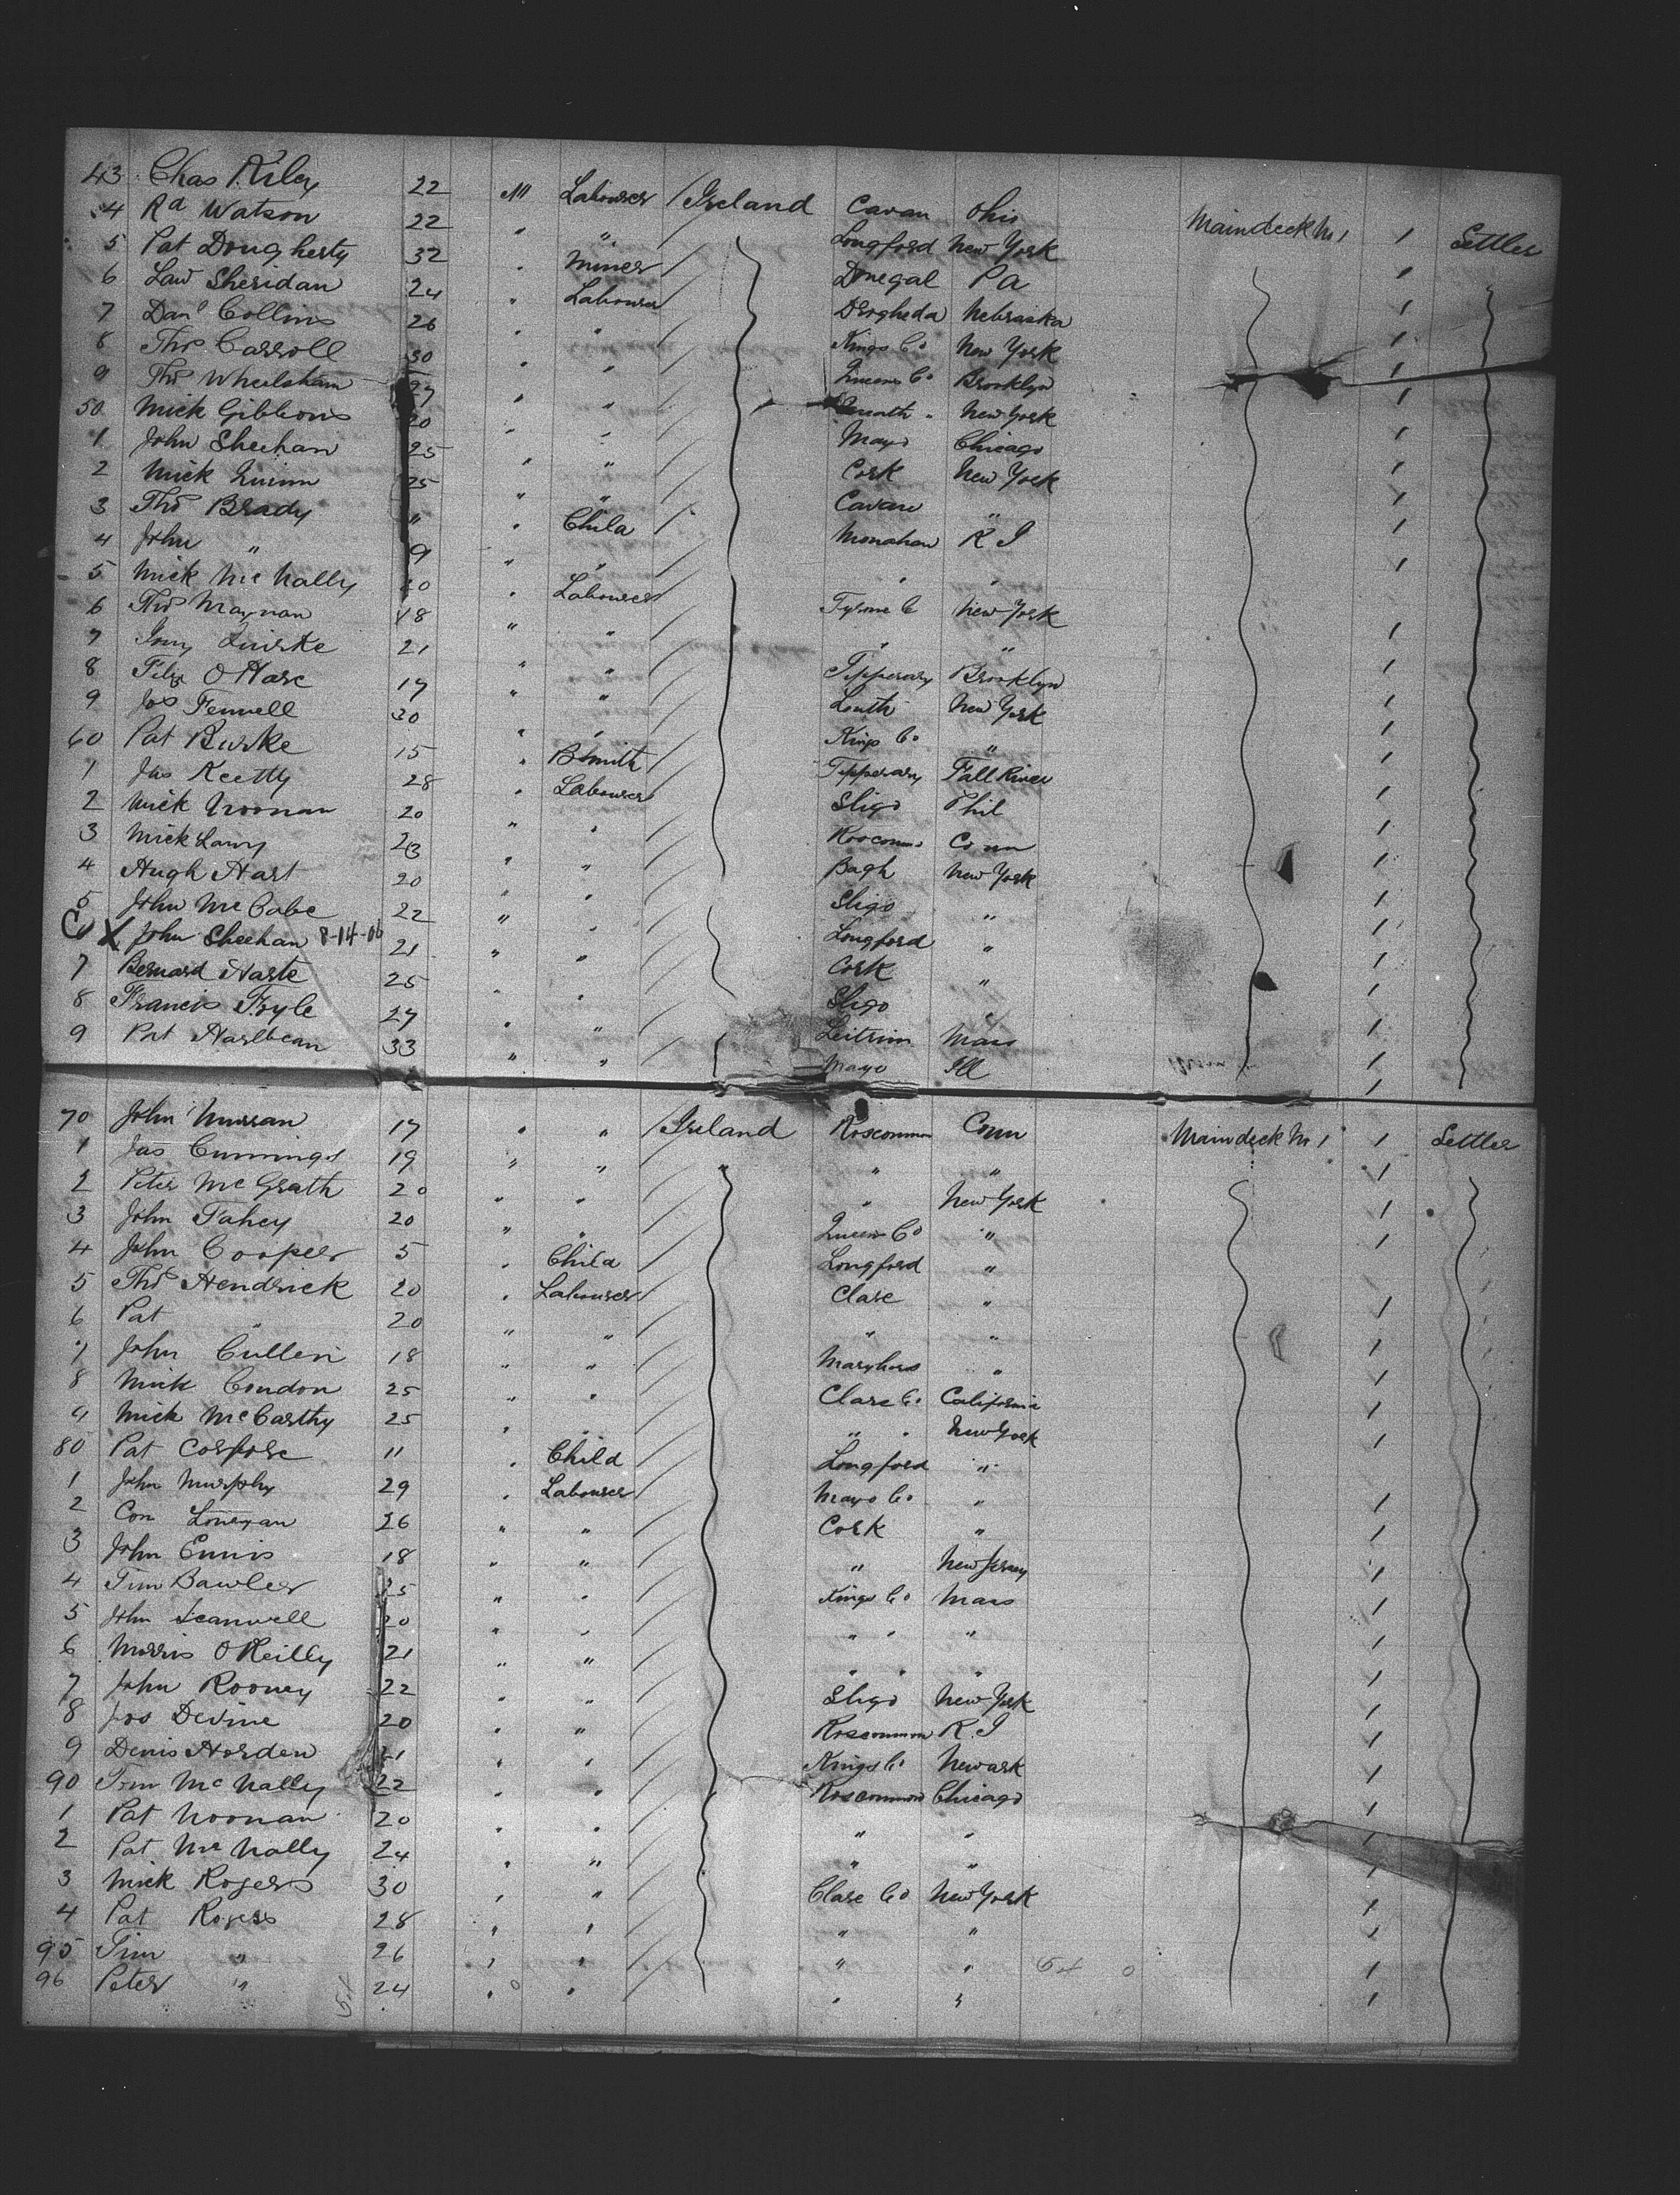 43 Chas Riley 22 M Labourer / Ireland Cavan Ohio Maindeck No 1 1 Settler
44 Rd Watson 22 " " / Longford New York 1
5 Pat Dougherty 32 " Miner / Donegal Pa 1
6 Law Sheridan 24 " Labourer / Drogheda Nebraska 1
7 Danl Collins 26 " " / Kings Co New York 1
8 Thos Carroll 30 " " / Queens Co Brooklyn 1
9 Thos 27 " " / " New York 1
50 Mick Gibbons 20 " " / Mayo Chicago 1
1 John Sheehan 25 " " / Cork New York 1
2 Mick Quinn 25 " " / Cavan " 1
3 Thos Brady " " Child / Monahan R I 1
4 John " 9 " " / " " 1
5 Mick McNally 20 " Labourer / Tyrone C New York
6 Thos 18 " " / " " 1
7 Quirke 21 " " / Tipperary Brooklyn 1
8 O Hare 19 " " / Louth New York 1
9 Jos Fennell 30 " " / Kings Co " 1
60 Pat Burke 15 " BSmith / Tipperary Fall River 1
1 Jas 28 " Labourer / Sligo Phil 1
2 Mick Noonan 20 " " / Roscomm Conn 1
3 Mick 23 " " / New York 1
4 Hugh Hart 20 " " / Sligo " 1
5 John McCabe 22 " " / Longford " 1
X John Sheehan 8-14-06 21 " " / Cork " 1
7 Bernard Harte 25 " " / Sligo " 1
8 Francis Fryle 27 " " / Leitrim Mass 1
9 Pat 33 " " / Mayo Ill 1
70 John 17 " " / Ireland Roscommon Conn Maindeck No 1 1 Settler
1 Jas Cummings 19 " " / " " 1
2 Peter McGrath 20 " " / " New York 1
3 John Fahey 20 " " / Queens Co " 1
4 John Cooper 5 " Child / Longford "
5 Thos Hendrick 20 " Labourer / Clare " 1
6 Pat " 20 " " / " " 1
7 John Cullen 18 " " / " 1
8 Mick Condon 25 " " / Clare Co California 1
9 Mick McCarthy 25 " " / " " New York 1
80 Pat 11 " Child / Longford "
1 John Murphy 29 " Labourer / Mayo Co " 1
2 Con 26 " " / Cork " 1
3 John Ennis 18 " " / " New Jersey 1
4 Tim Bawler 25 " " / Kings Co Mass 1
5 John Scanwell 20 " " / " " " 1
6 Morris O Reilly 21 " " / " " " 1
7 John Rooney 22 " " / Sligo New York 1
8 Jos Devine 20 " " / Roscommon R. I 1
9 Denis Horden 21 " " / Kings Co Newark 1
90 Tom McNally 22 " " / Roscommon Chicago 1
1 Pat Noonan 20 " " / " " 1
2 Pat McNally 24 " " / " " 1
3 Mick Rogers 30 " " / Clare Co New York 1
4 Pat Rogers 28 " " / " " 1
95 Tim " 26 " " / " " 1
96 Peter " 24 " " / " " 1